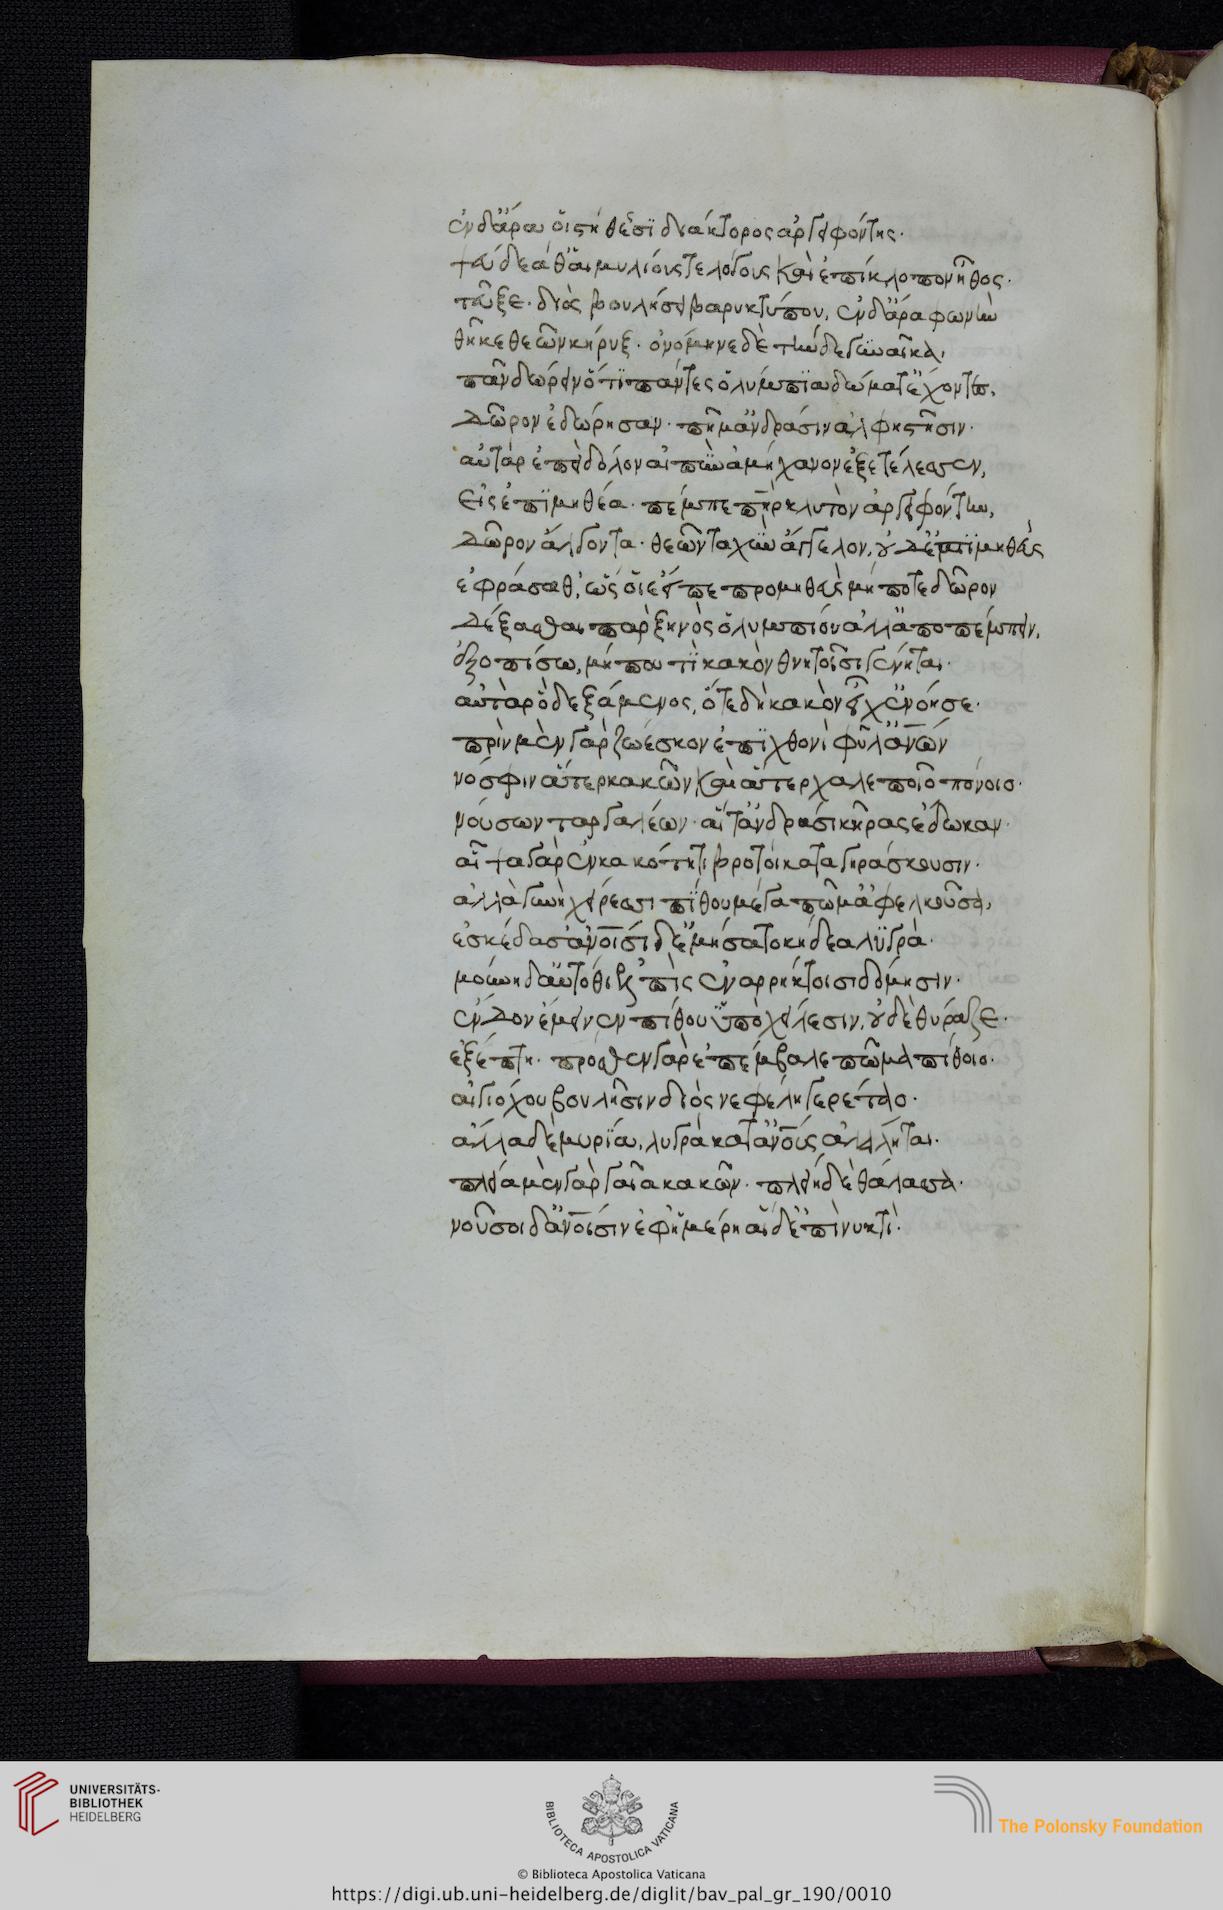 ἐν δ' ἄρα οἱ στήθεσι διάκτορος ἀργειφόντης·
ψεύδεά θ' αἱμυλίους τε λόγους καὶ ἐπίκλοπον ἦθος·
τεῦξε· διὸς βουλῆσι βαρυκτύπου, ἐν δ' ἄρα φωνὴν
θῆκε θεῶν κήρυξ· ὀνόμηνε δὲ τήνδε γυναῖκα,
πανδώρην ὅτι πάντες ὀλύμπια δώματ' ἔχοντες,
δῶρον ἐδώρησαν· πῆμ' ἀνδράσιν ἀλφηστῆσιν·
αὐτὰρ ἐπεὶ δόλον αἰπὺν ἀμήχανον ἐξετέλεσσεν,
εἰς ἐπιμηθέα· πέμπε πὴρ κλυτὸν ἀργειφόντην,
δῶρον ἄγοντα· θεῶν ταχὺν ἄγγελον, οὐδ' ἐπιμηθεὺς
ἐφράσαθ', ὥς οἱ ἔειπε προμηθεὺς μή ποτε δῶρον
δέξασθαι παρ ζηνὸς ὀλυμπίου ἀλλ' ἀποπέμπειν,
ἐξοπίσω, μή που τι κακὸν θνητοῖσι γένηται·
αὐτὰρ ὁ δεξάμενος, ὅτε δὴ κακὸν εἶχ' ἐνόησε·
πρὶν μὲν γὰρ ζώεσκον ἐπὶ χθονὶ φῦλ' ἀνῶν
νόσφιν ἄτερ κακῶν καὶ ἄτερ χαλεποῖο πόνοιο·
νούσων τ' ἀργαλέων· αἵ τ' ἀνδράσι κῆρας ἔδωκαν·
αἶψα γὰρ ἐν κακότητι βροτοὶ καταγηράσκουσιν·
ἀλλὰ γυνὴ χείρεσσι πίθου μέγα πῶμ' ἀφελοῦσα,
ἐσκέδασ' ἀνοῖσι δ' ἐμήσατο κήδεα λυγρά·
μούνη δ' αὐτόθι ἐλπὶς ἐν ἀρρήκτοισι δόμησιν·
ἔνδον ἔμεινεν πίθου ὑπὸ χείλεσιν, οὐδὲ θύραζε·
ἐξέπτη· πρόσθεν γὰρ ἐπέμβαλε πῶμα πίθοιο·
αἰγιόχου βουλῆσιν διὸς νεφεληγερέταο·
ἄλλα δὲ μυρία, λυγρὰ κατ' ἀνούς ἀλάληται·
πλείη μὲν γὰρ γαῖα κακῶν· πλείη δὲ θάλασσα·
νοῦσοι δ' ἀνοῖσιν ἐφ' ἡμέρη αἱ δ' ἐπὶ νυκτὶ·
UNIVERSITÄTS-
BIBLIOTHEK
HEIDELBERG
BIBLIOTECA APOSTOLICA VATICANA
The Polonsky Foundation
© Biblioteca Apostolica Vaticana
https://digi.ub.uni-heidelberg.de/diglit/bav_pal_gr_190/0010